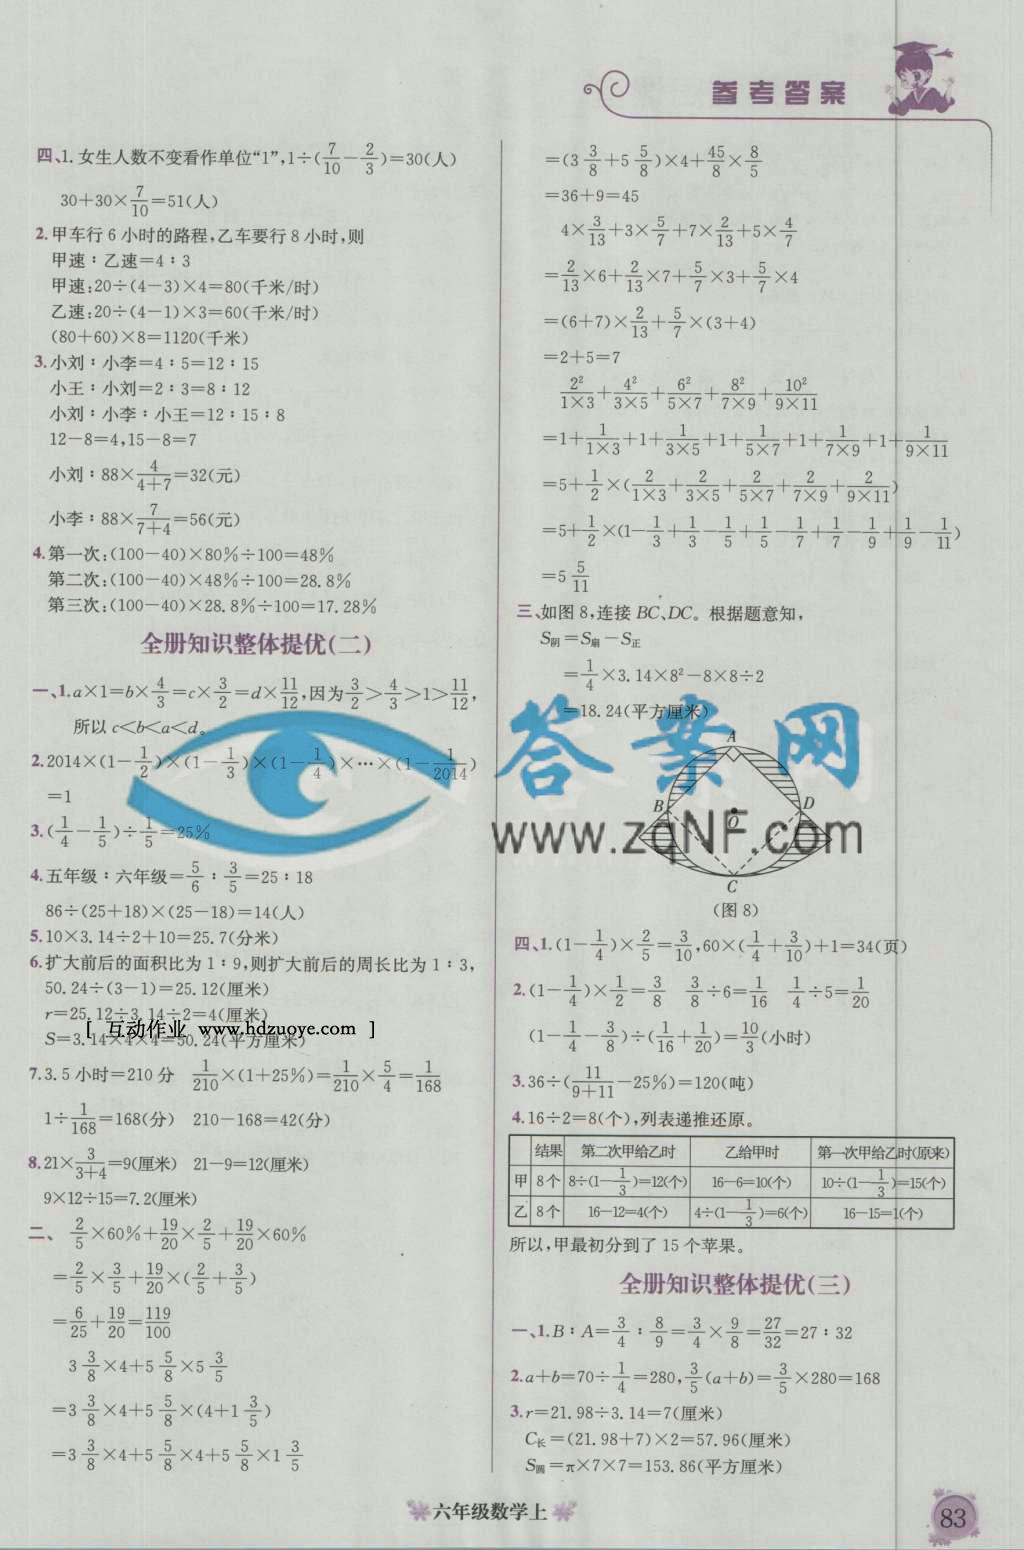 参考答案
四、1. 女生人数不变看作单位“1”,1÷(7/10－2/3)=30(人)
30+30×7/10=51(人)
2. 甲车行 6 小时的路程,乙车要行 8 小时,则
甲速∶乙速=4∶3
甲速:20÷(4－3)×4=80(千米/时)
乙速:20÷(4－1)×3=60(千米/时)
(80+60)×8=1120(千米)
3. 小刘∶小李=4∶5=12∶15
小王∶小刘=2∶3=8∶12
小刘∶小李∶小王=12∶15∶8
12－8=4,15－8=7
小刘:88×4/(4+7)=32(元)
小李:88×7/(7+4)=56(元)
4. 第一次:(100－40)×80%÷100=48%
第二次:(100－40)×48%÷100=28.8%
第三次:(100－40)×28.8%÷100=17.28%
全册知识整体提优(二)
一、1. a×1=b×4/3=c×3/2=d×11/12,因为3/2>4/3>1>11/12,
所以 c<b<a<d。
2. 2014×(1－1/2)×(1－1/3)×(1－1/4)×…×(1－1/2014)
=1
3. (1/4－1/5)÷1/5=25%
4. 五年级∶六年级=5/6∶3/5=25∶18
86÷(25+18)×(25－18)=14(人)
5. 10×3.14÷2+10=25.7(分米)
6. 扩大前后的面积比为 1∶9,则扩大前后的周长比为 1∶3,
50.24÷(3－1)=25.12(厘米)
r=25.12÷3.14÷2=4(厘米)
S=3.14×4×4=50.24(平方厘米)
[ 互动作业 www.hdzuoye.com ]
7. 3.5 小时=210 分 1/210×(1+25%)=1/210×5/4=1/168
1÷1/168=168(分) 210－168=42(分)
8. 21×3/(3+4)=9(厘米) 21－9=12(厘米)
9×12÷15=7.2(厘米)
二、 2/5×60%+19/20×2/5+19/20×60%
=2/5×3/5+19/20×(2/5+3/5)
=6/25+19/20=119/100
3 3/8×4+5 5/8×5 3/5
=3 3/8×4+5 5/8×(4+1 3/5)
=3 3/8×4+5 5/8×4+5 5/8×1 3/5
=(3 3/8+5 5/8)×4+45/8×8/5
=36+9=45
4×3/13+3×5/7+7×2/13+5×4/7
=2/13×6+2/13×7+5/7×3+5/7×4
=(6+7)×2/13+5/7×(3+4)
=2+5=7
2²/(1×3)+4²/(3×5)+6²/(5×7)+8²/(7×9)+10²/(9×11)
=1+1/(1×3)+1+1/(3×5)+1+1/(5×7)+1+1/(7×9)+1+1/(9×11)
=5+1/2×(2/(1×3)+2/(3×5)+2/(5×7)+2/(7×9)+2/(9×11))
=5+1/2×(1－1/3+1/3－1/5+1/5－1/7+1/7－1/9+1/9－1/11)
=5 5/11
三、如图 8,连接 BC、DC。根据题意知,
S阴=S扇－S正
=1/4×3.14×8²－8×8÷2
=18.24(平方厘米)
答案网
www.zqNF.com
A
B D
O
C
(图 8)
四、1. (1－1/4)×2/5=3/10,60×(1/4+3/10)+1=34(页)
2. (1－1/4)×1/2=3/8 3/8÷6=1/16 1/4÷5=1/20
(1－1/4－3/8)÷(1/16+1/20)=10/3(小时)
3. 36÷(11/(9+11)－25%)=120(吨)
4. 16÷2=8(个),列表递推还原。
结果 第二次甲给乙时 乙给甲时 第一次甲给乙时(原来)
甲 8 个 8÷(1－1/3)=12(个) 16－6=10(个) 10÷(1－1/3)=15(个)
乙 8 个 16－12=4(个) 4÷(1－1/3)=6(个) 16－15=1(个)
所以,甲最初分到了 15 个苹果。
全册知识整体提优(三)
一、1. B∶A=3/4∶8/9=3/4×9/8=27/32=27∶32
2. a+b=70÷1/4=280,3/5(a+b)=3/5×280=168
3. r=21.98÷3.14=7(厘米)
C长=(21.98+7)×2=57.96(厘米)
S圆=π×7×7=153.86(平方厘米)
六年级数学上
83